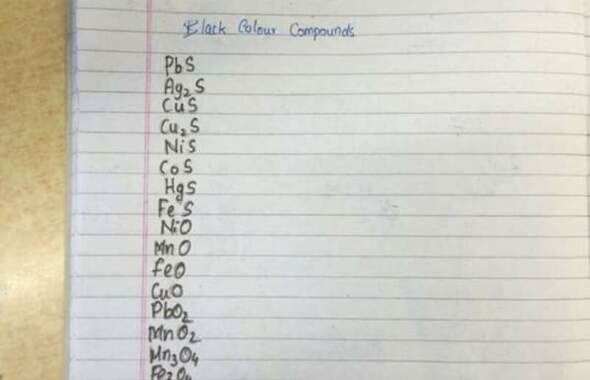 Black Colour Compounds
PbS
Ag₂S
CuS
Cu₂S
NiS
CoS
HgS
FeS
NiO
MnO
FeO
CuO
PbO₂
MnO₂
Mn₃O₄